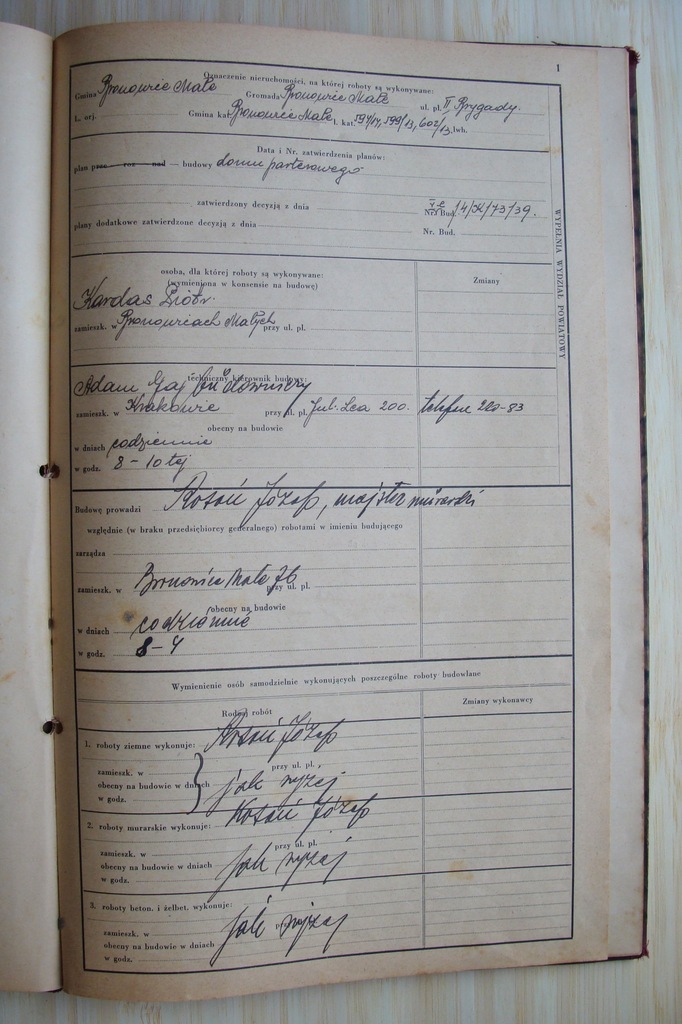 1
Oznaczenie nieruchomości, na której roboty są wykonywane:
Gmina Bronowice Małe Gromada Bronowice Małe ul. pl. II Brygady.
L. orj. Gmina kat. Bronowice Małe l. kat. 599/13, 602/13, lwh.
Data i Nr. zatwierdzenia planów:
plan prze- roz- nad — budowy domu parterowego
zatwierdzony decyzją z dnia Nr. Bud. 14/X/73/39.
plany dodatkowe zatwierdzone decyzją z dnia Nr. Bud.
WYPEŁNIA WYDZIAŁ POWIATOWY
osoba, dla której roboty są wykonywane: Zmiany
(wymieniona w konsensie na budowę)
Kardas Piotr
zamieszk. w Bronowicach Małych przy ul. pl.
techniczny kierownik budowy:
Adam Gaj budowniczy
zamieszk. w Krakowie przy ul. pl. Jul. Lea 200. telefon 220-83
obecny na budowie
w dniach codziennie
w godz. 8 - 10 tej
Budowę prowadzi Józef, majster murarski
względnie (w braku przedsiębiorcy generalnego) robotami w imieniu budującego
zarządza
zamieszk. w Bronowice Małe 76 przy ul. pl.
obecny na budowie
w dniach codziennie
w godz. 8-4
Wymienienie osób samodzielnie wykonujących poszczególne roboty budowlane
Rodzaj robót Zmiany wykonawcy
1. roboty ziemne wykonuje: Józef
zamieszk. w przy ul. pl.
obecny na budowie w dniach jak wyżej
w godz.
2. roboty murarskie wykonuje: Józef
zamieszk. w przy ul. pl.
obecny na budowie w dniach jak wyżej
w godz.
3. roboty beton. i żelbet. wykonuje:
zamieszk. w jak wyżej
obecny na budowie w dniach
w godz.